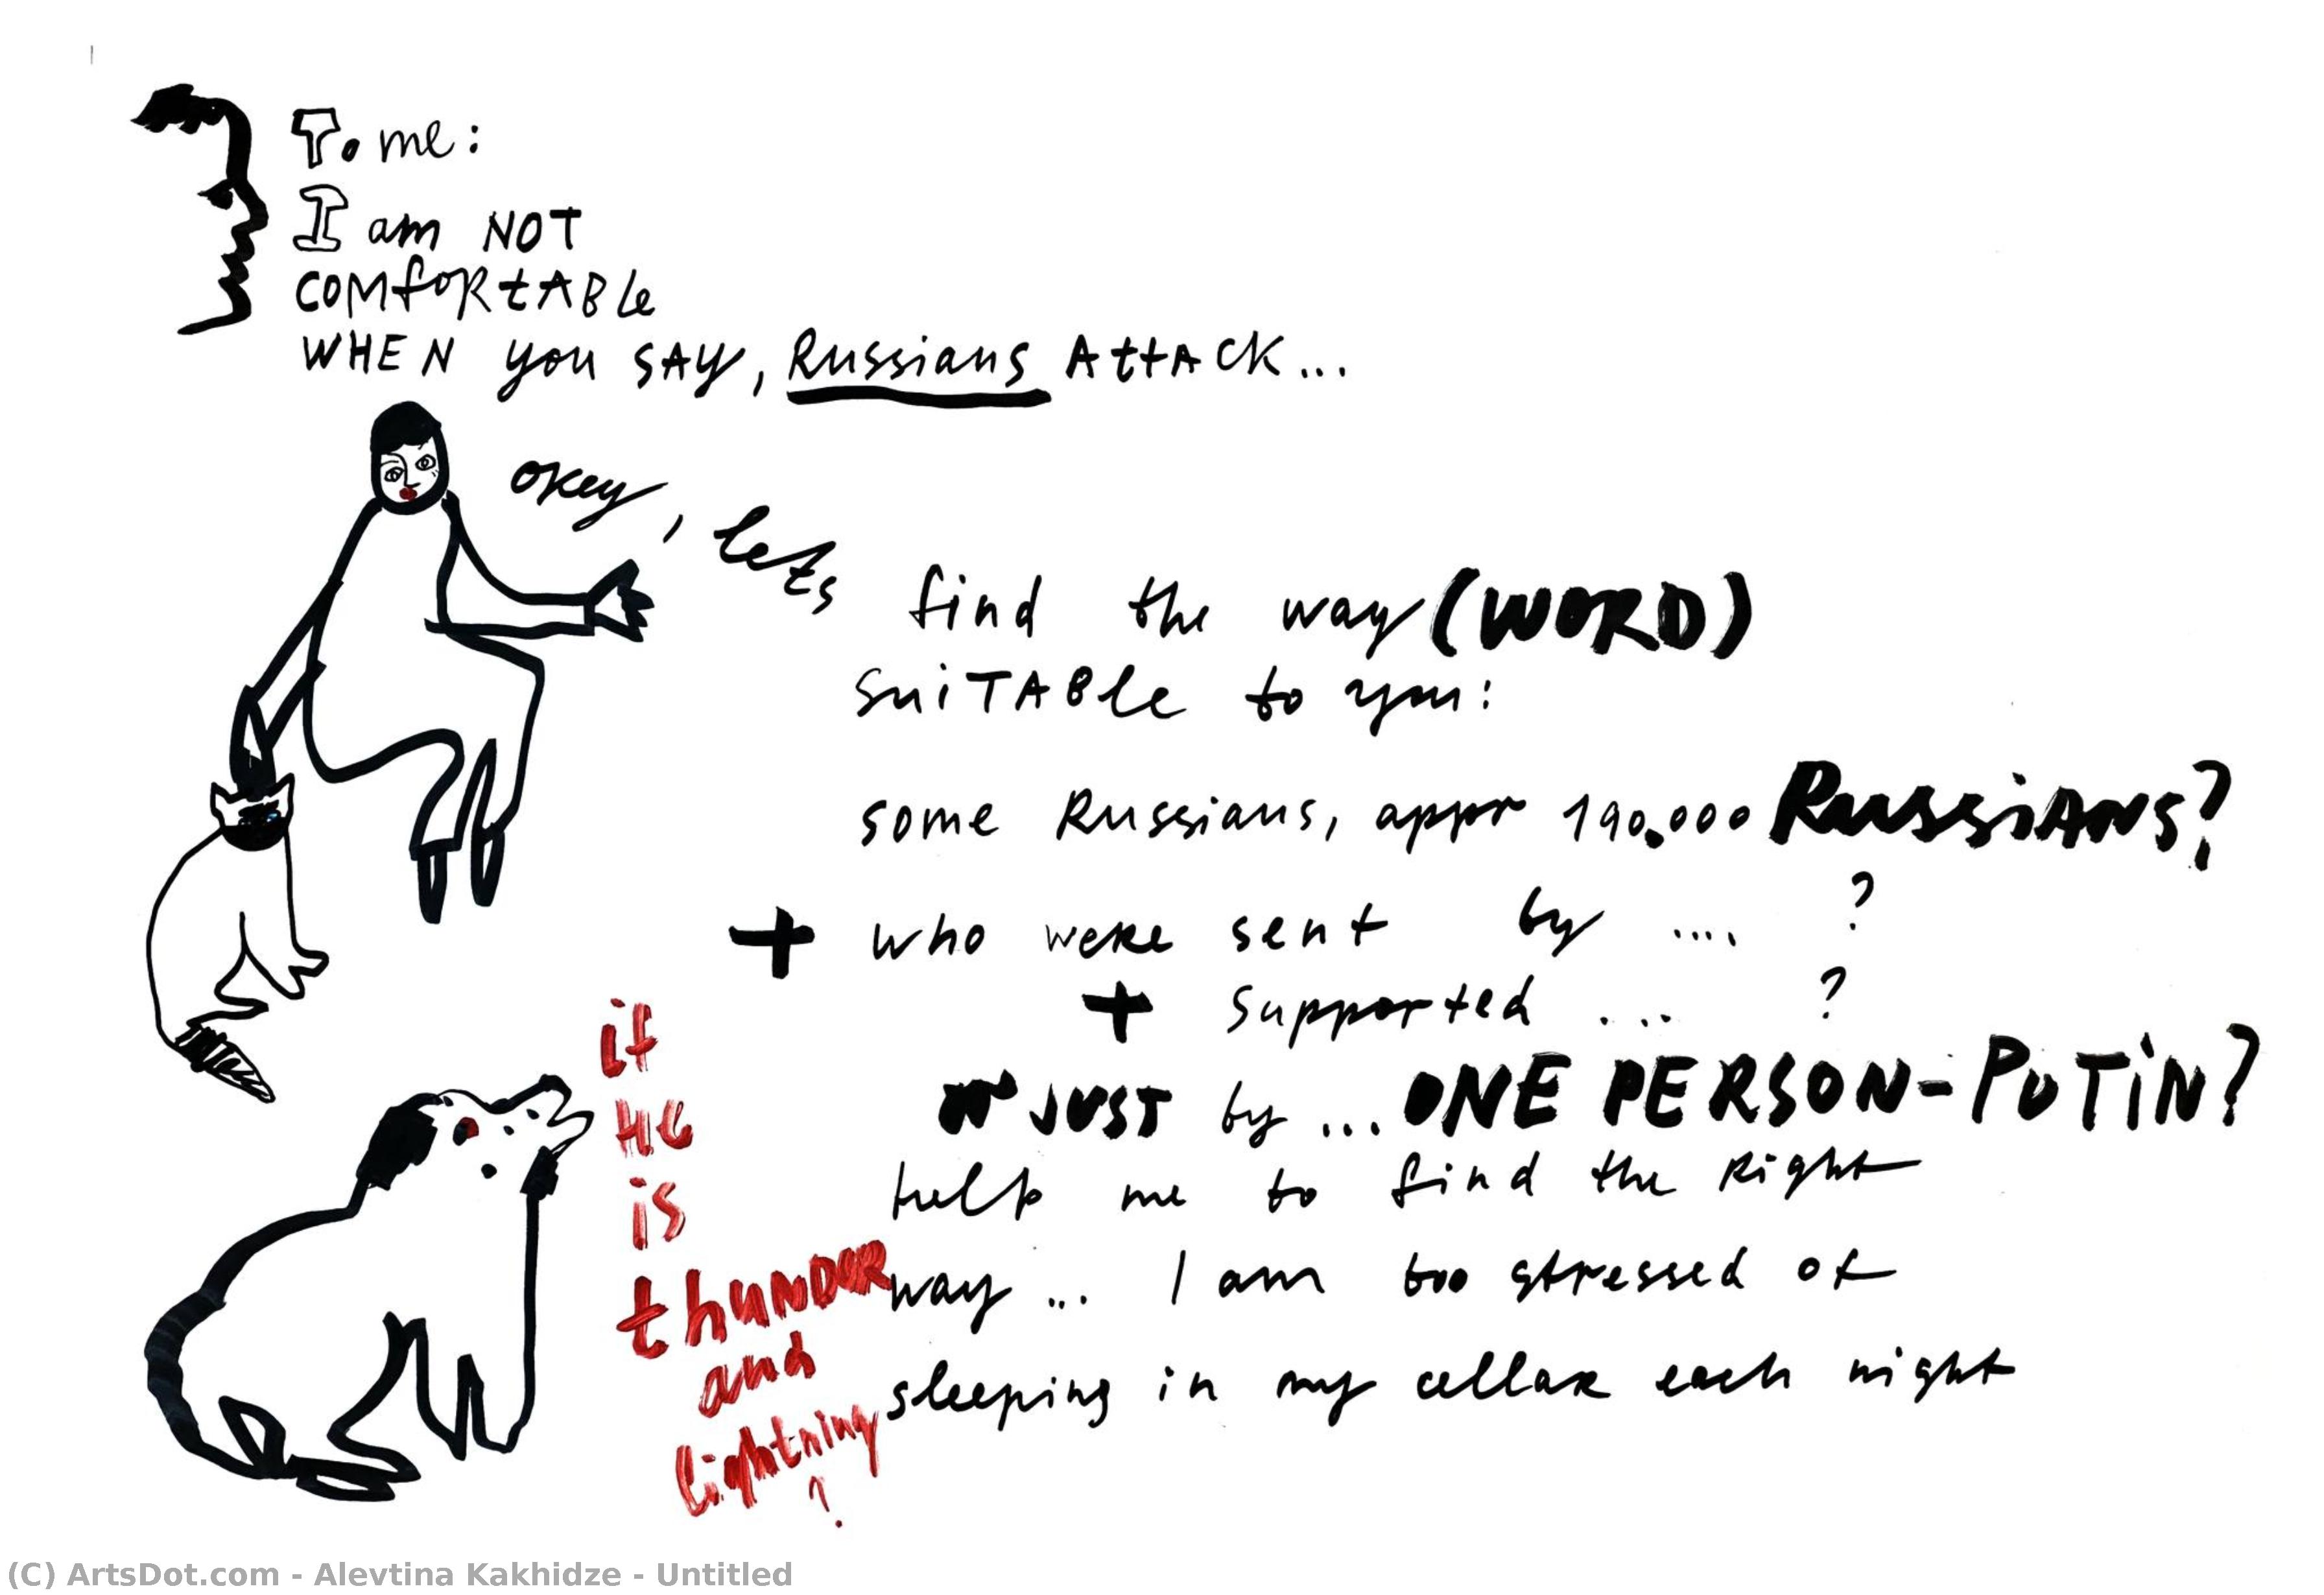 To me:
I am NOT
COMfORtABle
WHEN you SAY, Russians AttACK...
okey, lets find the way (WORD)
suiTABle to you:
some Russians, appr 190.000 RussiANs?
+ who were sent by .... ?
+ supported .... ?
JUST by ... ONE PERSON-PUTiN?
help me to find the Right
way ... I am too stressed of
sleeping in my cellar each night
if
HE
is
thUNDER
and
lightning
?
(C) ArtsDot.com - Alevtina Kakhidze - Untitled